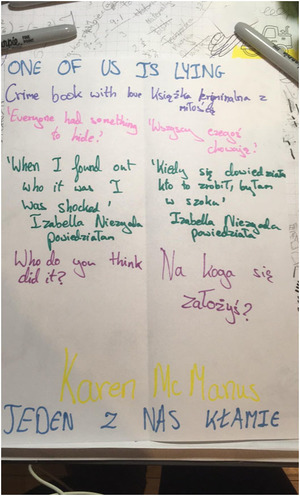 ONE OF US IS LYING
Crime book with love
'Everyone had something
to hide.'
'When I found out
who it was I
was shocked'
Izabella Niezgoda
powiedziałam
Who do you think
did it?
Książka kryminalna z
miłością
'Wszyscy czegoś
chowają'
'Kiedy się dowiedziałam
kto to zrobił, byłam
w szoku'
Izabella Niezgoda
powiedziała
Na koga się
założyś?
Karen Mc Manus
JEDEN Z NAS KŁAMIE